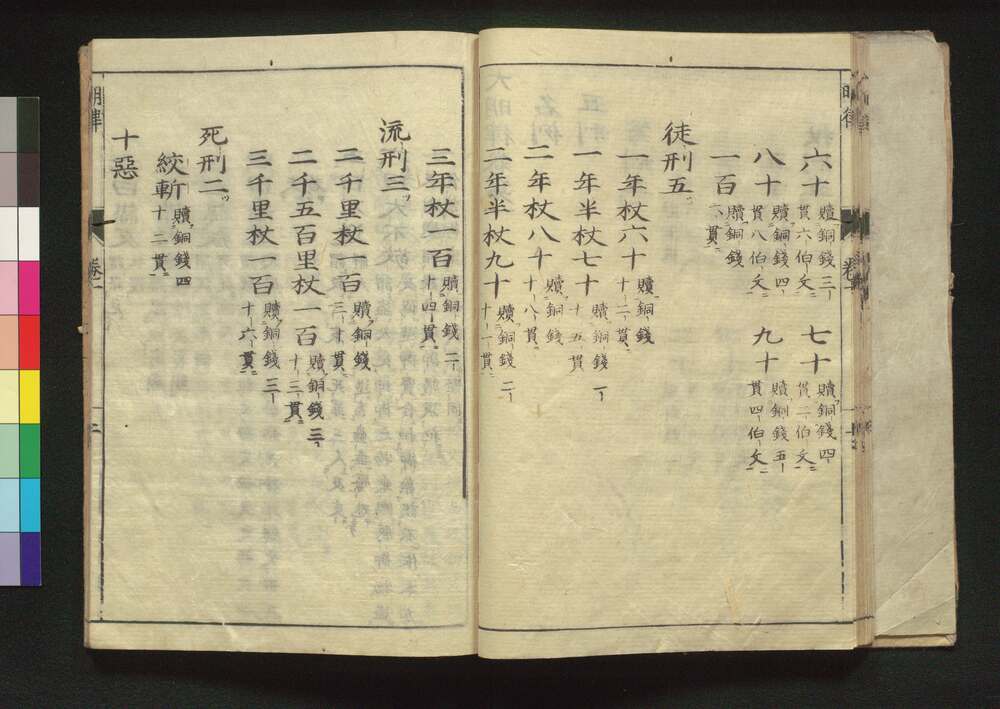 六十 贖銅錢三貫六伯文 七十 贖銅錢四貫二伯文
八十 贖銅錢四貫八伯文 九十 贖銅錢五貫四伯文
一百 贖銅錢六貫
徒刑五
一年杖六十 贖銅錢十二貫
一年半杖七十 贖銅錢一十五貫
二年杖八十 贖銅錢十八貫
二年半杖九十 贖銅錢二十一貫
三年杖一百 贖銅錢二十四貫
流刑三
二千里杖一百 贖銅錢三十貫
二千五百里杖一百 贖銅錢三十三貫
三千里杖一百 贖銅錢三十六貫
死刑二
絞斬 贖銅錢四十二貫
十惡
明律 卷一 二